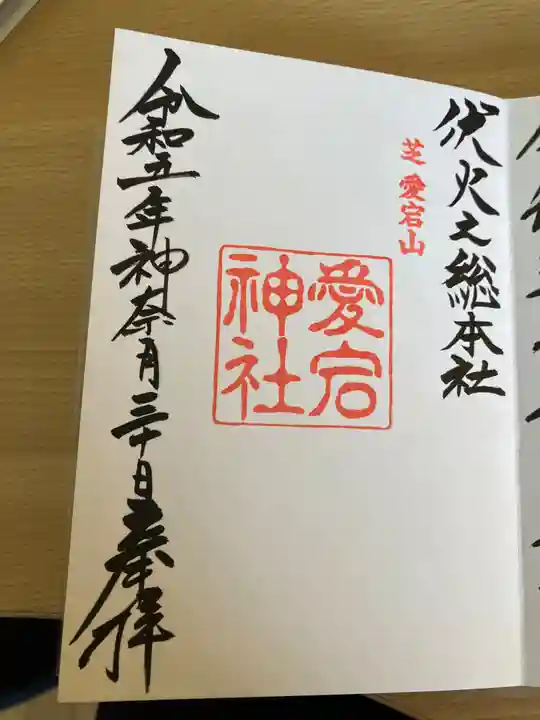 伏火之総本社
芝愛宕山
愛宕
神社
令和五年神奈月三十日奉拝